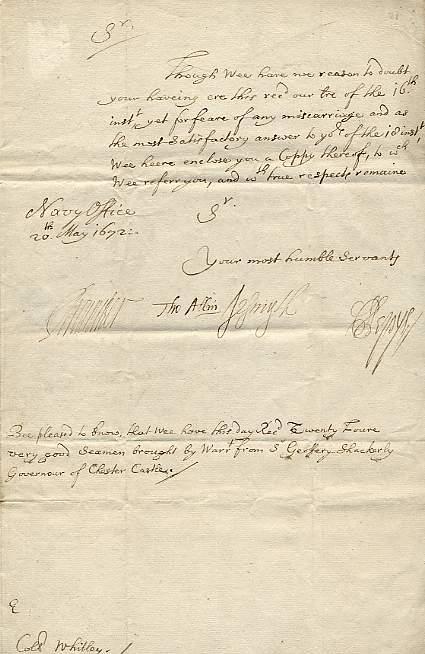 Sr.
Though Wee have no reason to doubt
your haveing ere this recd our tre of the 16th
instt, yet for feare of any miscarriage and as
the most satisfactory answer to yors of the 18 instt
Wee heere enclose you a Coppy thereof, to wch
Wee referr you, and wth true respects remaine
Navy Office
20th May 1672:
Sr.
Your most humble Servants
Brouncker Tho Allin JeSmyth SPepys
Bee pleased to know, that wee have this day Recd Twenty Foure
very good Seamen brought by Warrt from Sr Geffery Shackerly
Governour of Chester Castle.
Coll Whitley.